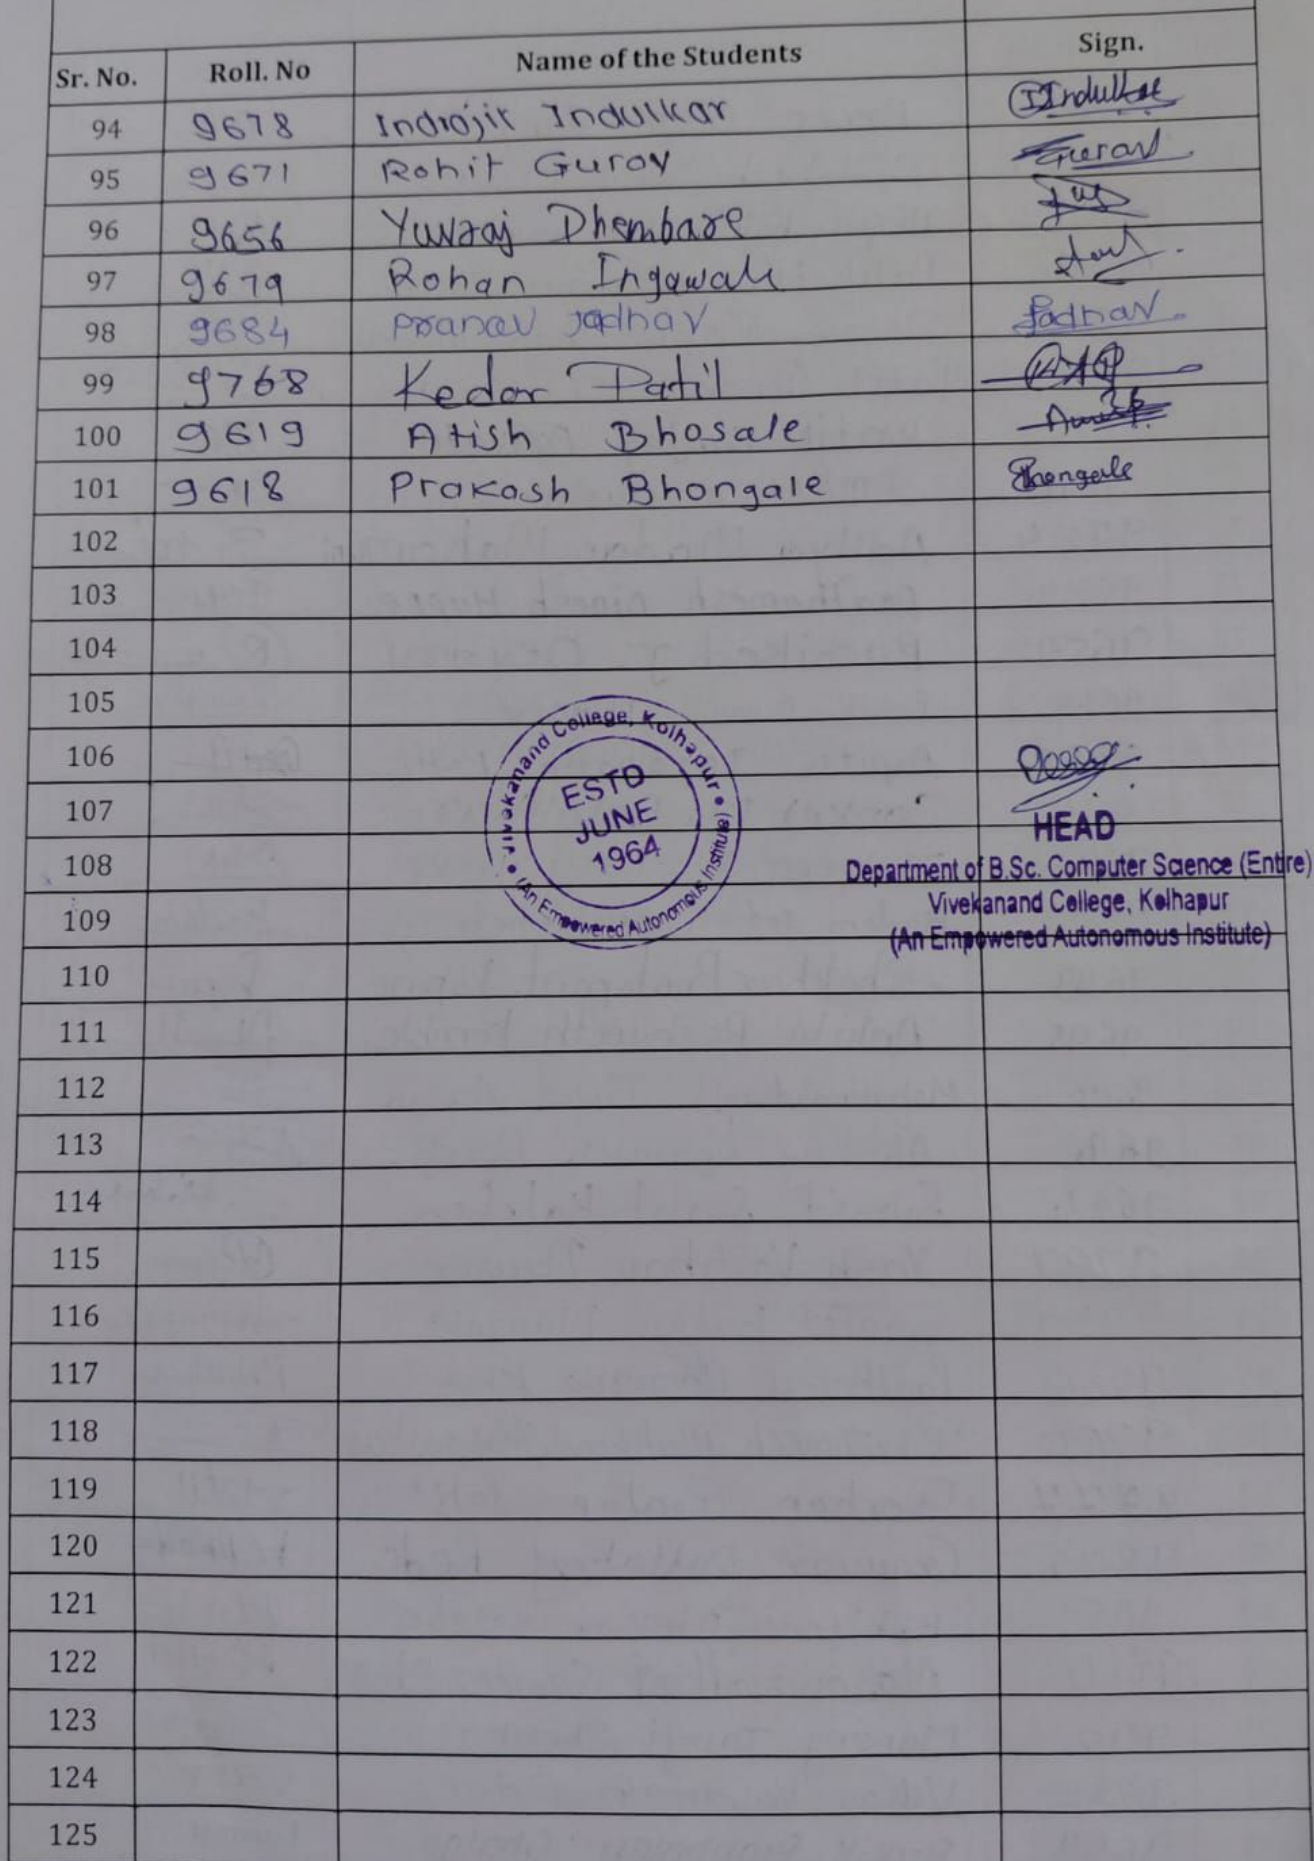 Sr. No. Roll. No Name of the Students Sign.
94 9678 Indrajit Indulkar IIndulkar
95 9671 Rohit Gurav Gurav
96 9656 Yuvraj Dhembare
97 9679 Rohan Ingawale
98 9684 Pranav Jadhav Jadhav
99 9768 Kedar Patil
100 9619 Atish Bhosale
101 9618 Prakash Bhongale Bhongale
102
103
104
105
106
107
108
109
110
111
112
113
114
115
116
117
118
119
120
121
122
123
124
125
Vivekanand College, Kolhapur
(An Empowered Autonomous Institute)
ESTD
JUNE
1964
HEAD
Department of B.Sc. Computer Science (Entire)
Vivekanand College, Kolhapur
(An Empowered Autonomous Institute)